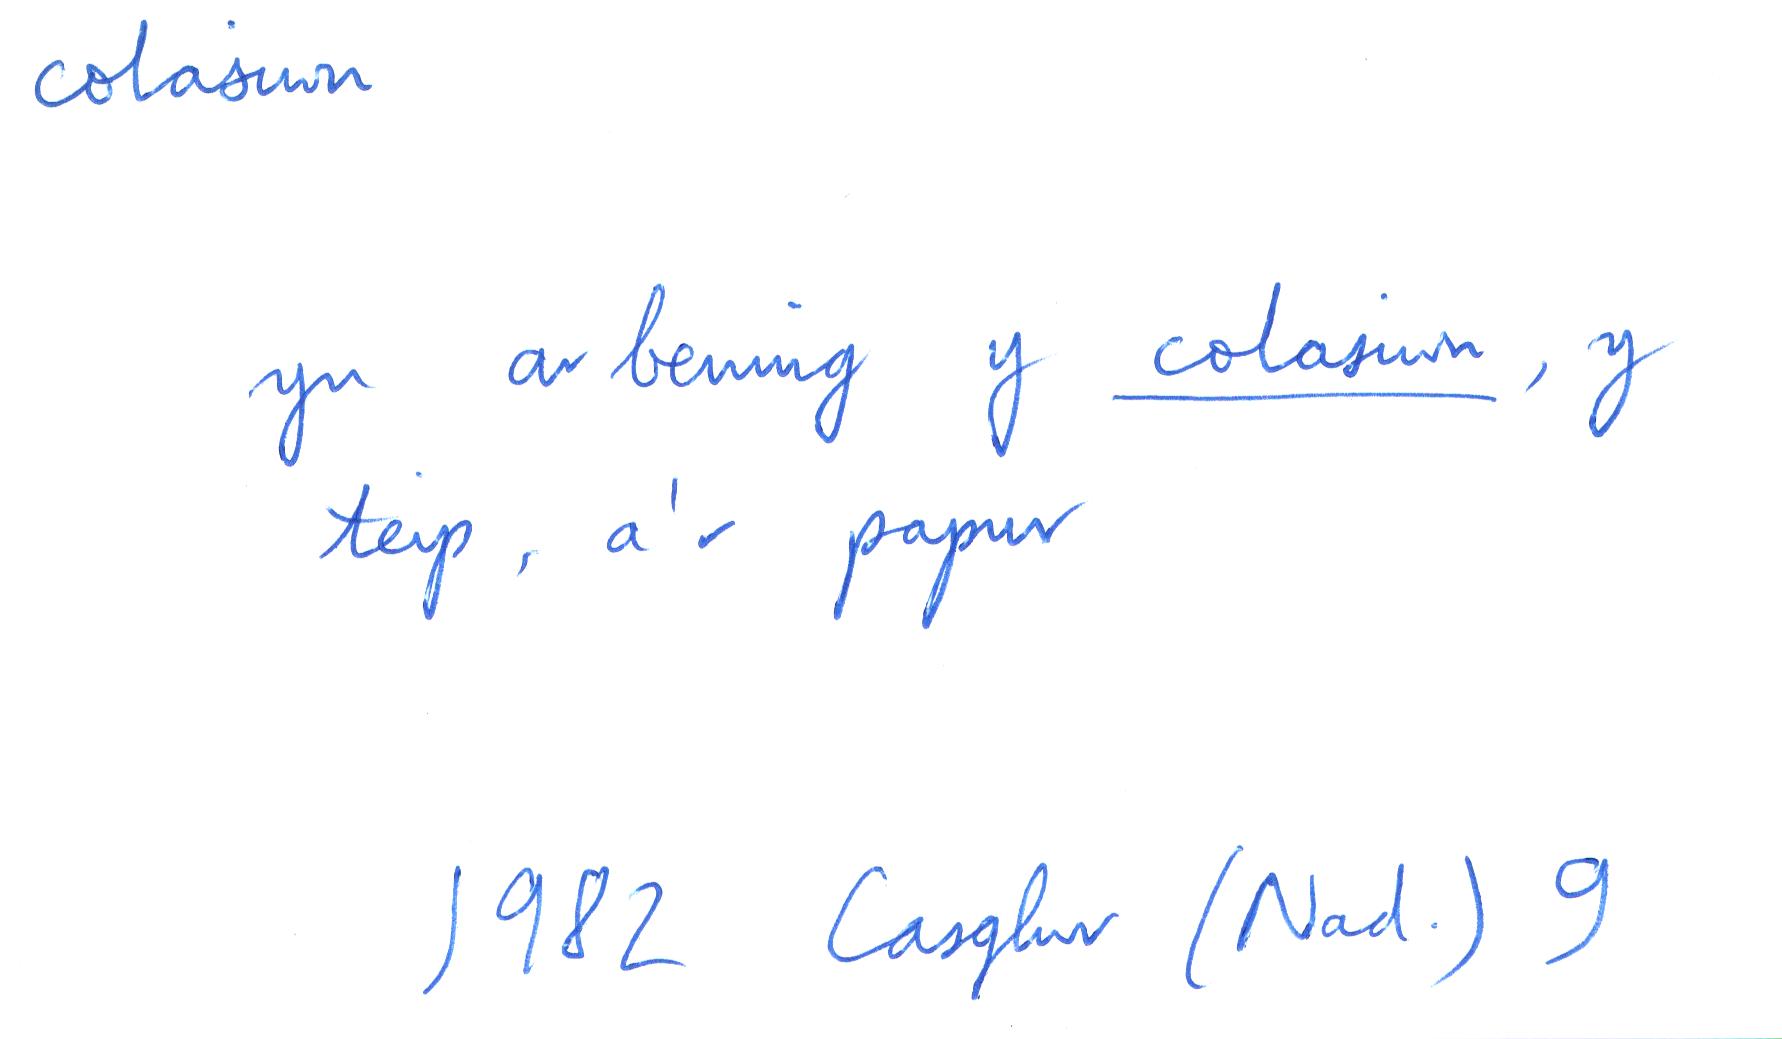 colasiwn
yn arbennig y colasiwn, y
teip, a'r papur
1982 Casglwr (Nad.) 9